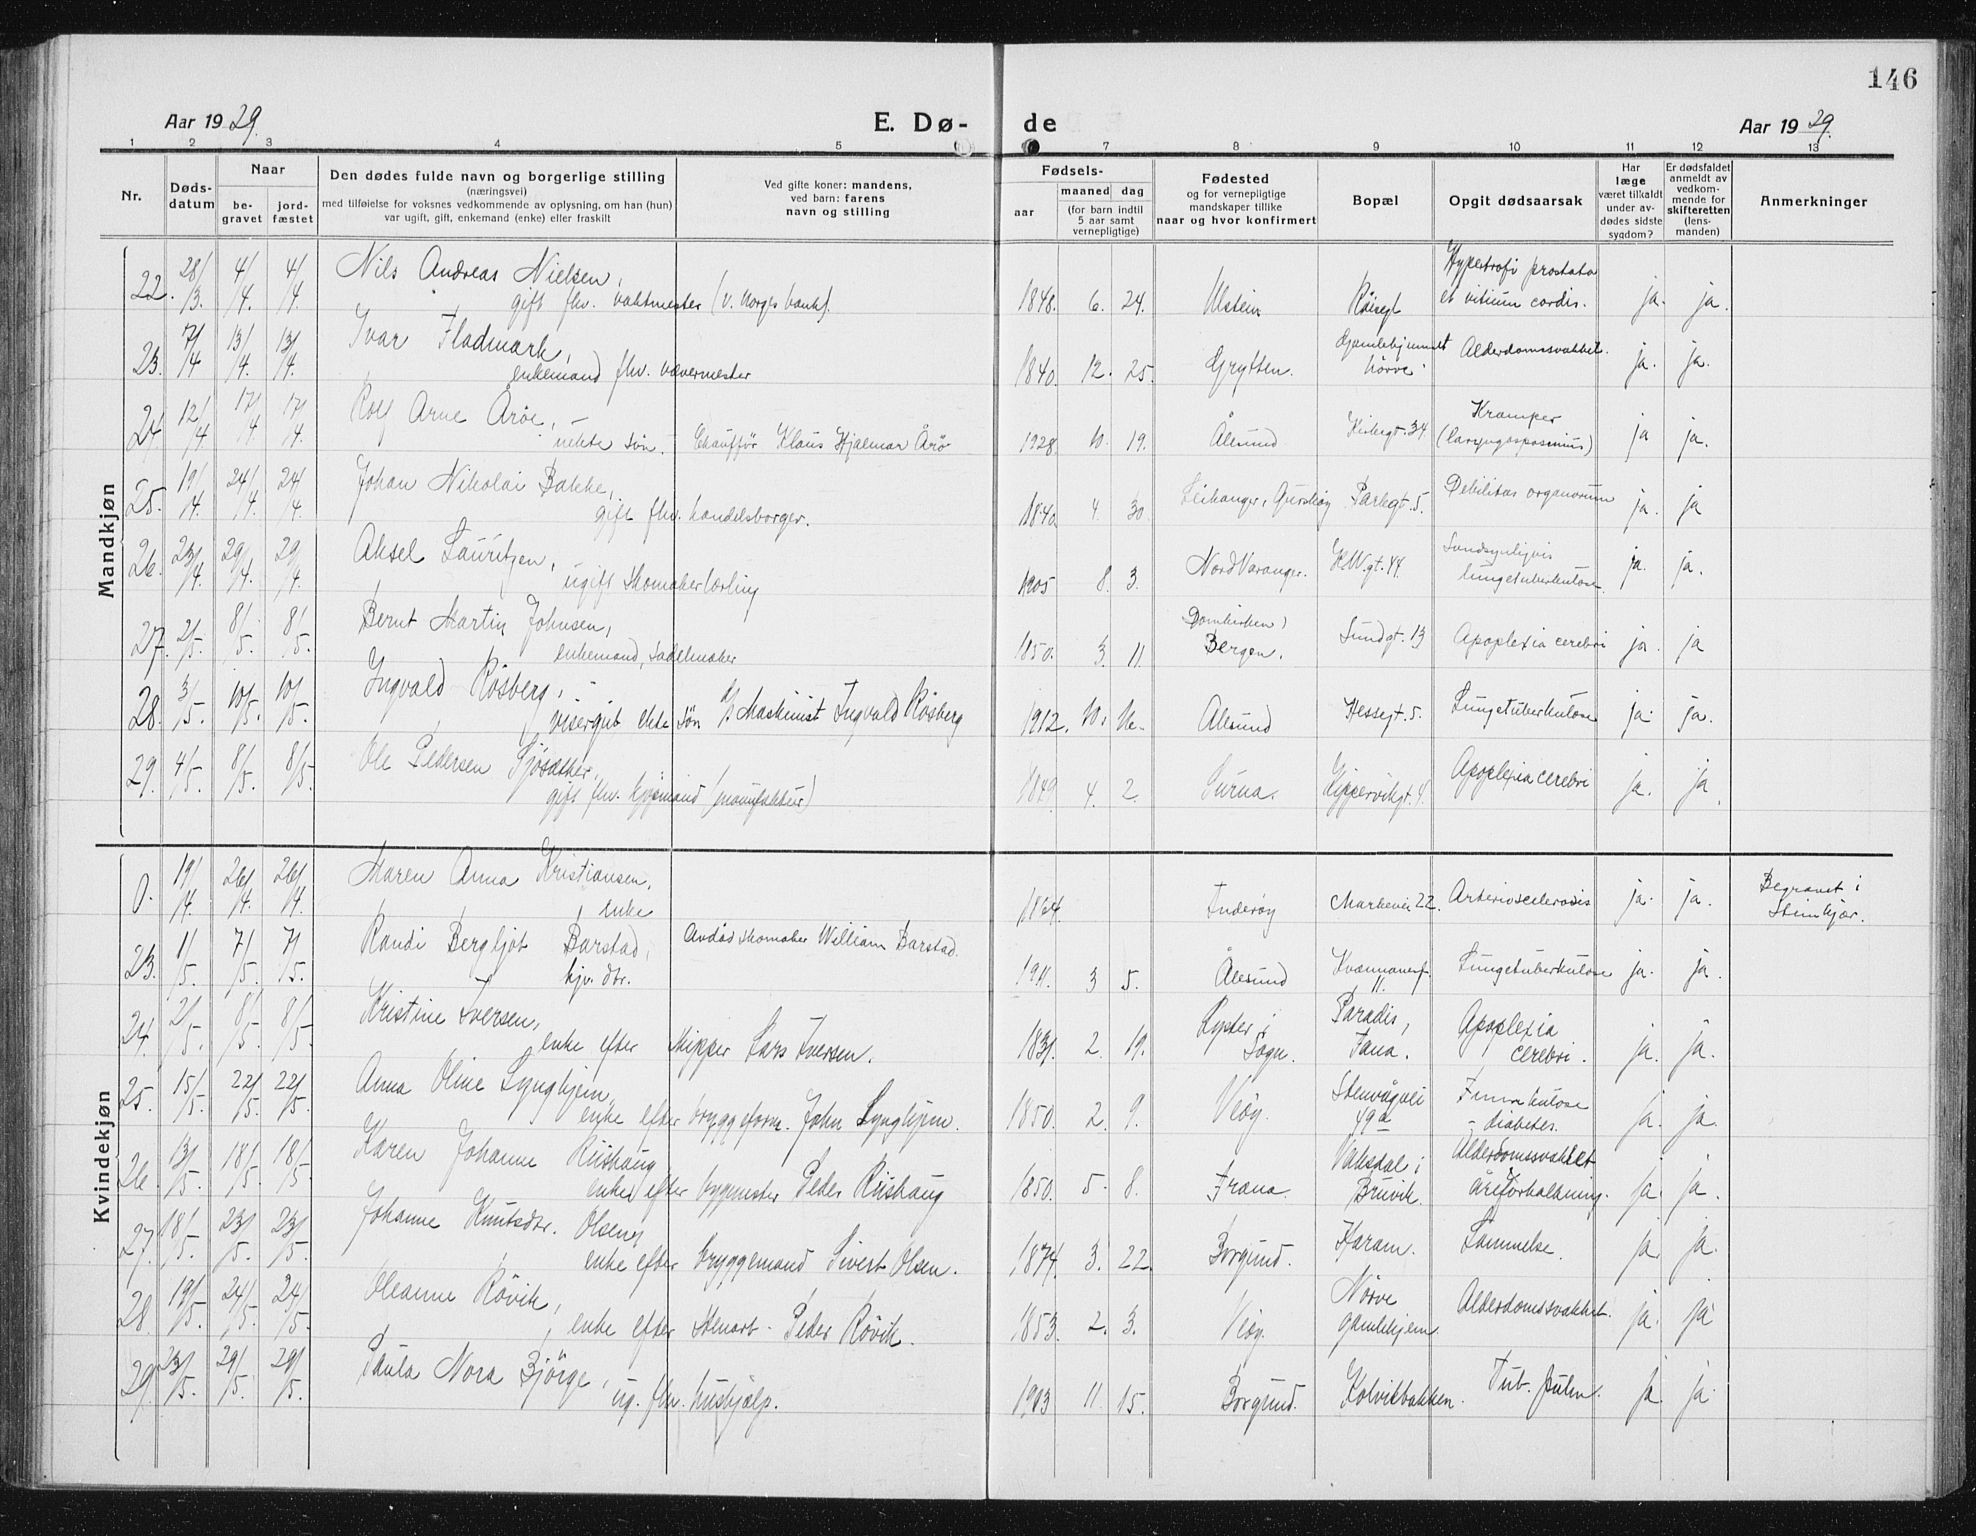 146
Aar 1929.
E. Dø-
de
Aar 1929.
1 2 3 4 5 7 8 9 10 11 12 13
Nr.
Døds-
datum
Naar
be-
gravet
jord-
fæstet
Den dødes fulde navn og borgerlige stilling
(næringsvei)
med tilføielse for voksnes vedkommende av oplysning, om han (hun)
var ugift, gift, enkemand (enke) eller fraskilt
Ved gifte koner: mandens,
ved barn: farens
navn og stilling
Fødsels-
aar
maaned
dag
(for barn indtil
5 aar samt
vernepligtige)
Fødested
og for vernepligtige
mandskaper tillike
naar og hvor konfirmert
Bopæl
Opgit dødsaarsak
Har
læge
været tilkaldt
under av-
dødes sidste
sygdom?
Er dødsfaldet
anmeldt av
vedkom-
mende for
skifteretten
(lens-
manden)
Anmerkninger
Mandkjøn
22. 28/3. 4/4. 4/4. Nils Andreas Nielsen,
gift fhv. vaktmester (v. Norges bank). 1848. 6. 24. Ulstein Røisegt Hypertrofi prostata
et vitium cordis. ja. ja.
23. 7/4 13/4. 13/4. Ivar Fladmark,
enkemand fhv. vævermester 1840. 12. 25. Grytten. Gamlehjemmet
Nörve Alderdomssvakhet. ja. ja.
24. 12/4 17/4 17/4. Rolf Arne Årøe,
uekte sön. Chaufför Klaus Hjalmar Årö 1928. 10. 19. Ålesund Kirkegt. 34 Kramper
(laryngospasmus) ja ja.
25. 19/4. 24/4. 24/4. Johan Nikolai Bakke,
gift fhv. handelsborger. 1840. 4. 30. Leikanger, Gurskøy Parkgt. 5. Debilitas organorum ja. ja
26. 23/4. 29/4. 29/4. Aksel Lauritzen,
ugift skomakerlærling 1905 8. 3. Nord Varanger. K.W.gt. 44. Sandsynligvis
lungetuberkulose. ja. ja.
27. 2/5. 8/5. 8/5. Bernt Martin Johnsen,
enkemand, sadelmaker 1850. 3. 11. Domkirken,
Bergen. Sundgt. 13 Apoplexia cerebri ja. ja
28. 3/5. 10/5. 10/5. Ingvald Rösberg,
visergut ekte sön af Maskinist Ingvald Rösberg 1912. 10. Ålesund Hessegt. 5. Lungetuberkulose ja. ja.
29. 4/5. 8/5. 8/5. Ole Pedersen Sjösæther,
gift fhv. kjøpmand (manufaktur) 1849. 4. 2. Surna. Kippervikgt. 4. Apoplexia cerebri ja. ja.
Kvindekjøn
0. 19/4. 26/4. 26/4. Maren Anna Kristiansen,
enke 1864. Inderøy Markevei 22. Arteriosclerosis ja. ja. Begravet i
Steinkjær.
23. 1/5 7/5. 7/5. Randi Bergljot Barstad,
hjv. dtr. Avdød skomaker William Barstad. 1911. 3 5. Ålesund
11. Lungetuberkulose ja. ja.
24. 2/5. 8/5. 8/5. Kristine Iversen,
enke efter skipper Lars Iversen. 1831. 2. 19. Lyster i
Sogn. Paradis,
Fana. Apoplexia
cerebri. ja. ja.
25. 15/5. 22/5. 22/5. Anna Oline Lyngheim,
enke efter bryggeform. John Lyngheim. 1850. 2. 9. Veöy. Stenvågvei
49a
- diabetes. ja. ja.
26. 13/5. 18/5. 18/5. Karen Johanne Riishaug
enke efter bygmester Peder Riishaug 1850. 5. 8. Fræna. Vaksdal i
Bruvik. Alderdomssvakhet
åreforkalkning. ja. ja.
27. 18/5. 23/5. 23/5. Johanne Knutsdtr. Olsen,
enke efter bryggemand Sivert Olsen. 1874. 3. 22. Borgund. Haram. Lammelse. ja. ja.
28. 19/5. 24/5. 24/5. Oleanne Rövik,
enke efter stenarb. Peder Rövik. 1853. 2. 3. Veöy. Nörve
gamlehjem. Alderdomssvakhet. ja. ja
29. 23/5. 29/5. 29/5. Paula Nora Bjørge,
ug. fhv. hushjælp. 1903 11 15. Borgund. Kolvikbakken. Tub. pulm. ja. ja.